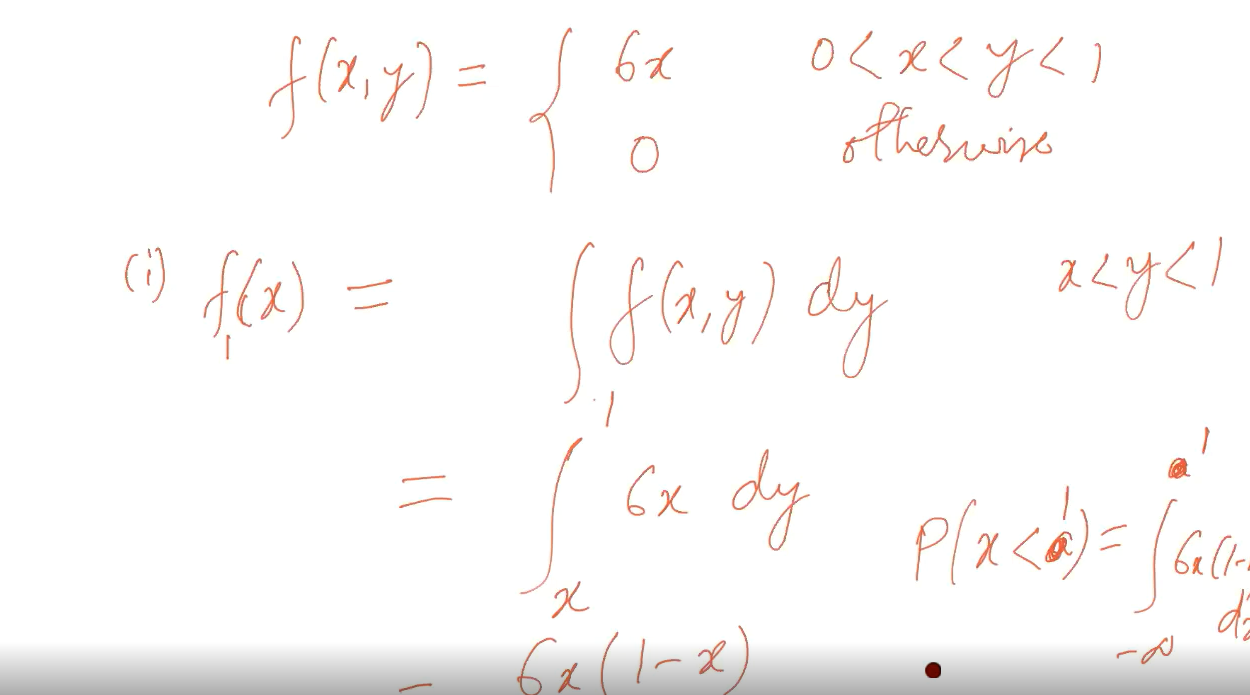 f(x,y) = { 6x 0<x<y<1
0 otherwise
(i) f₁(x) = ∫ f(x,y) dy x<y<1
= ∫ₓ¹ 6x dy P(x<1) = ∫₋∞¹ 6x(1-
dx
= 6x(1-x)